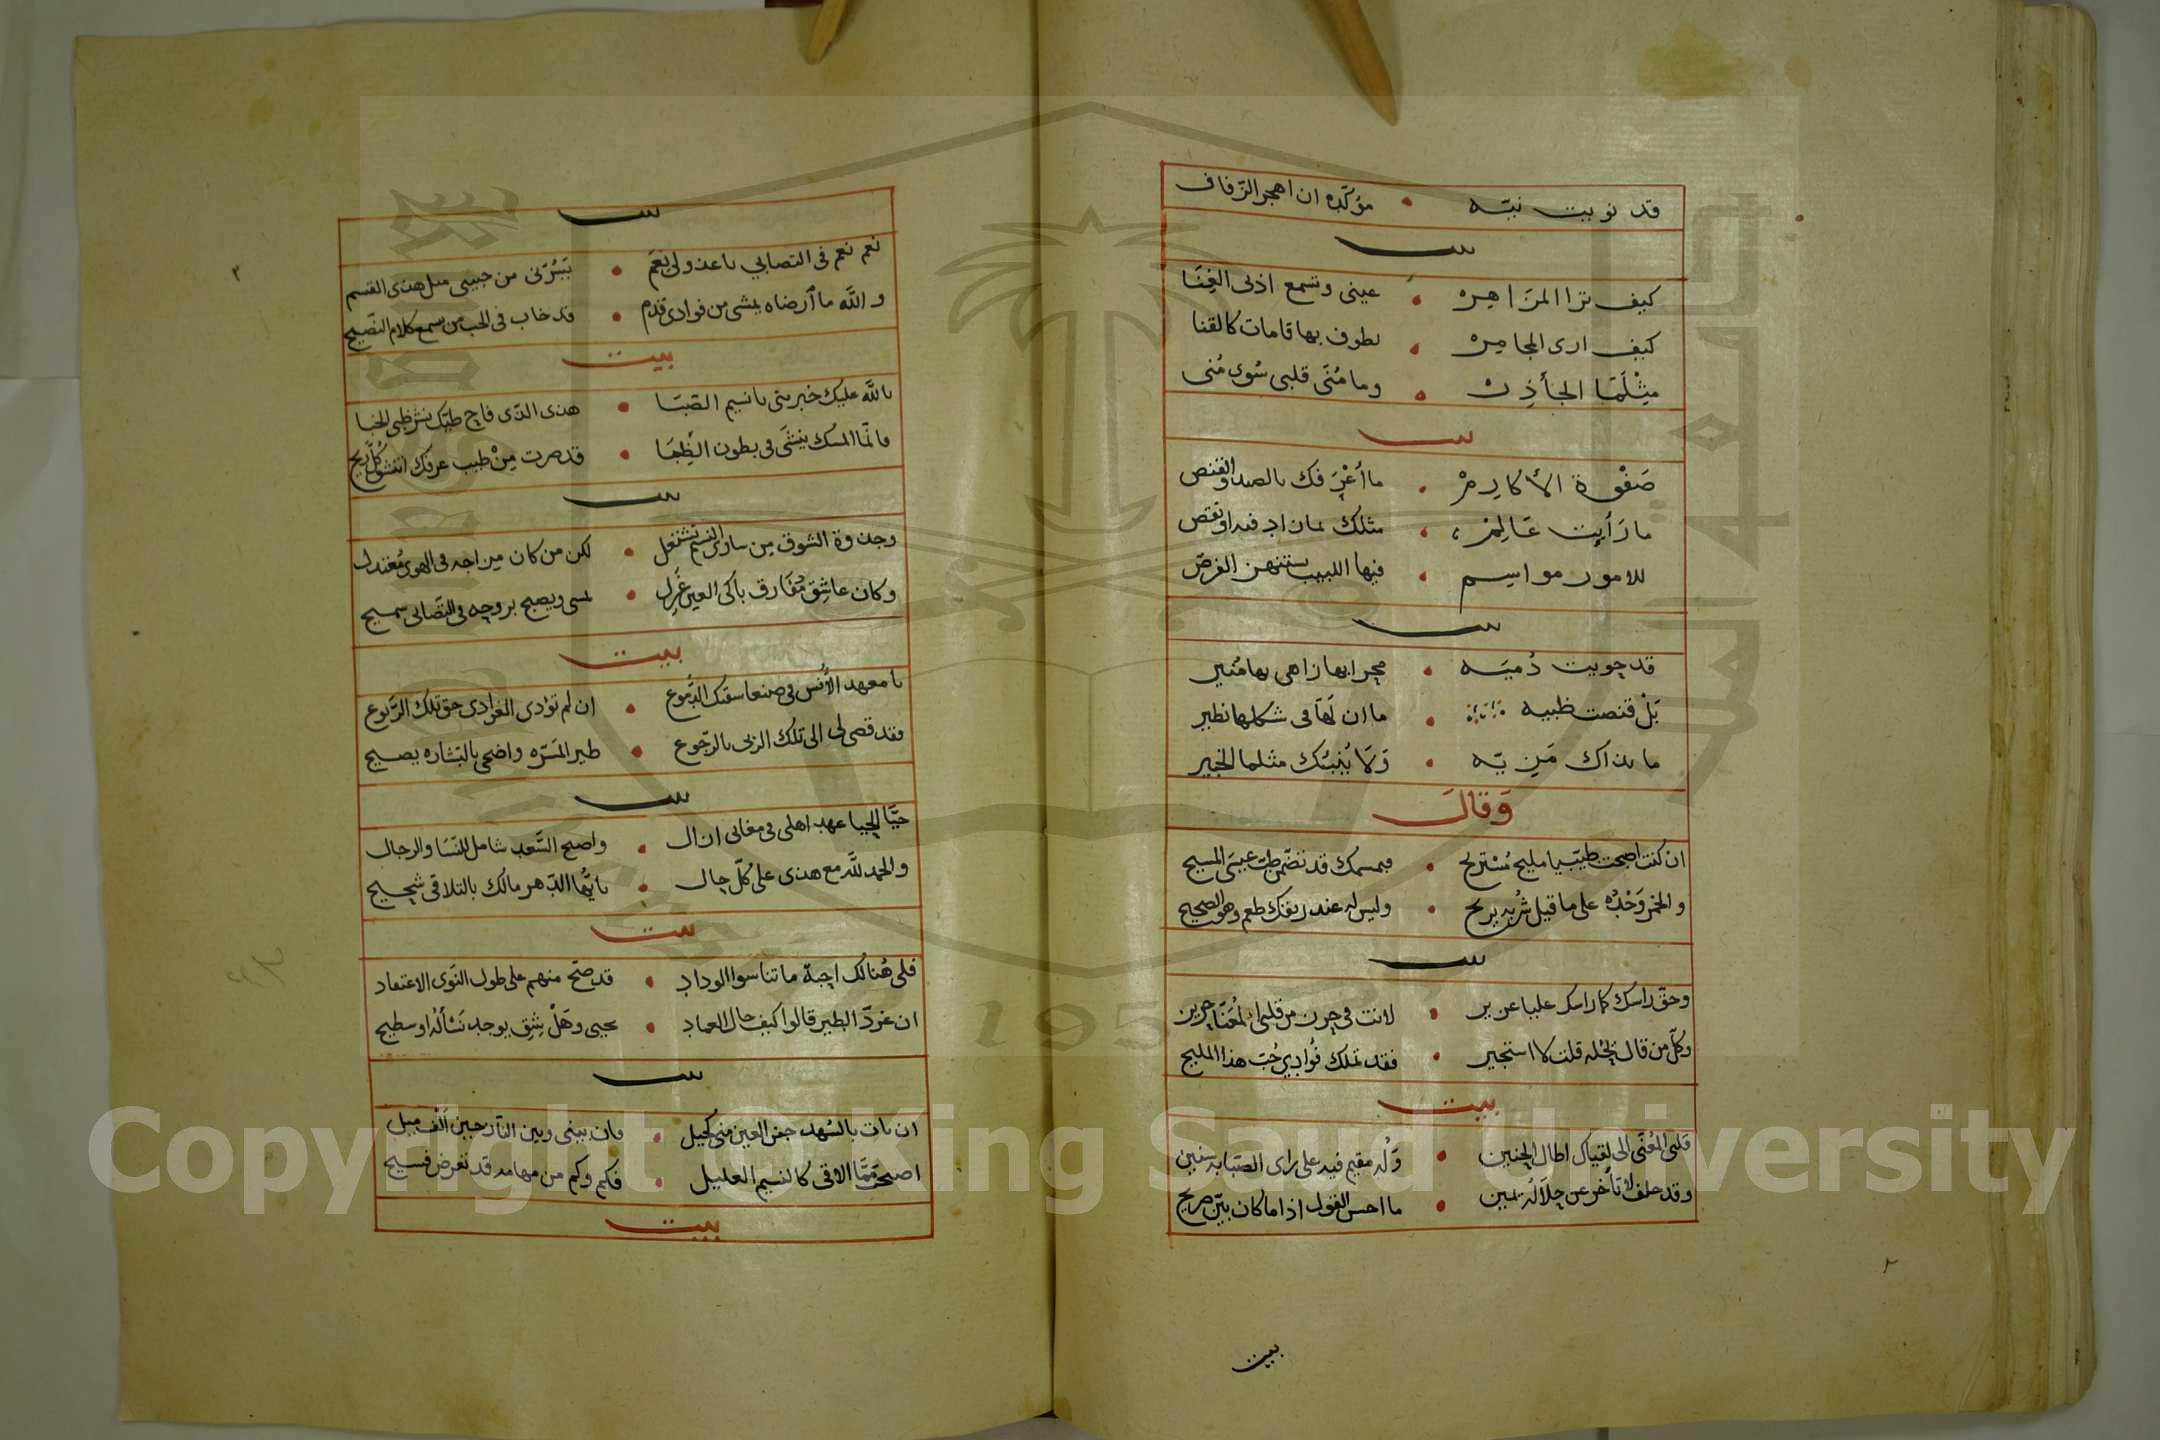 قد نويت نيّه • مؤكّده ان اهجر الزفاف
بيت
كيف ترا المزاهره • عينى وتسمع اذنى الغِنَا
كيف ارى المجامره • يطوف بها قامات كالقنا
وما مُنَى قلبى سُوى مُنى
بيت
صَفْوة الأكارِمْ • ما أعْرَفك بالصيد والقنص
ما رَأيت عَالِمْ • مثلك
للامور مواسِم • فيها اللبيب يستنهز الفرص
بيت
قد حويت دُميَه •
بَلْ قنصت ظبيه • ما ان لَهَا فى شكلها نظير
ولا يُنبئك مثلما الخبير
وَقالَ
ان كنت اصبحت طبيب يا مليح مُسْتريح • فبمسمك قد تضمّن طبّ عيسَى المسيح
والخمر وَحْدُه على ما قيل شُربه يريح • وليس له عند ريقك طعم وهو الصحيح
بيت
وحقّ راسك كما راسك علينا عزيز • لانت فى حرز من قلبى المُعَنّا حريز
وكلّ من قال قلت لا استجيز • فقد تملّك فُوادِي حُبّ هذا المليح
بيت
قلبى المُعَنّى الى لقياك اطال الحنين • وَلُه مقيم فيه على راى الصّبابه سنين
وقد حلف لا تأخر عن حلاله يمين • ما احسن القول اذا ما كان بيّن صريح
بيت
٢
٣
بيت
نعم نعم فى التصابي يا عذولى نِعَم • يَسُرّنى من حبيبى مثل هذى القسم
والله ما ارضاه يمشى من فوادى قدم • قد خاب فى الحب من سمع كلام النّصيح
بيت
بالله عليك خبر متى يا نسيم الصّبَا • هذى الذى فاح طيّك نشر ظبى الخبا
فانّما المسك ينشَى فى بطون الظِّبَا • قد صرت مِنْ طيب عرفك انتشق كلّ ريح
بيت
وجذوة الشوق مِن سارى النسيم تشتعل • لكن من كان مزاجه فى الهوى مُعتدل
وكان عاشِق مُفَارق باكى العين غَزِل • يمسى ويصبح بروحِه فى التّصابى سميح
بيت
يا معهد الأُنس فى صنعا سقتك الدُّموع • ان لم تؤدى الغوادى حق تلك الرّبوع
فقد قضى لى الى تلك الربى بالرّجوع • طير المسَرّه واضحى بالبشاره يصيح
بيت
حيّا الحيا عهد اهلى فى مغانى ازال • واصبح السّعد شامل للنّسَا والرجال
والحمد للّه مع هذى على كُلّ حال • يا ايّها الدّهر مالك بالتلاقى شحيح
بيت
فلى هُنالك احبّة ما تناسوا الوداد • قد صحّ منهم على طول النّوى الاعتقاد
ان غرّد الطير قالوا كيف حال العماد • يحيى وَهَلْ شِق يوجد نَسْأَله او سطيح
بيت
ان بات بالسُهد جفن العين منى كحيل • فان بينى وبين النّازحين الْف ميل
اصبحت ممّا الاقى كالنسيم العليل • فكم وكم من مهامه قد تعرض فسيح
بيت
Copyright © King Saud University
195